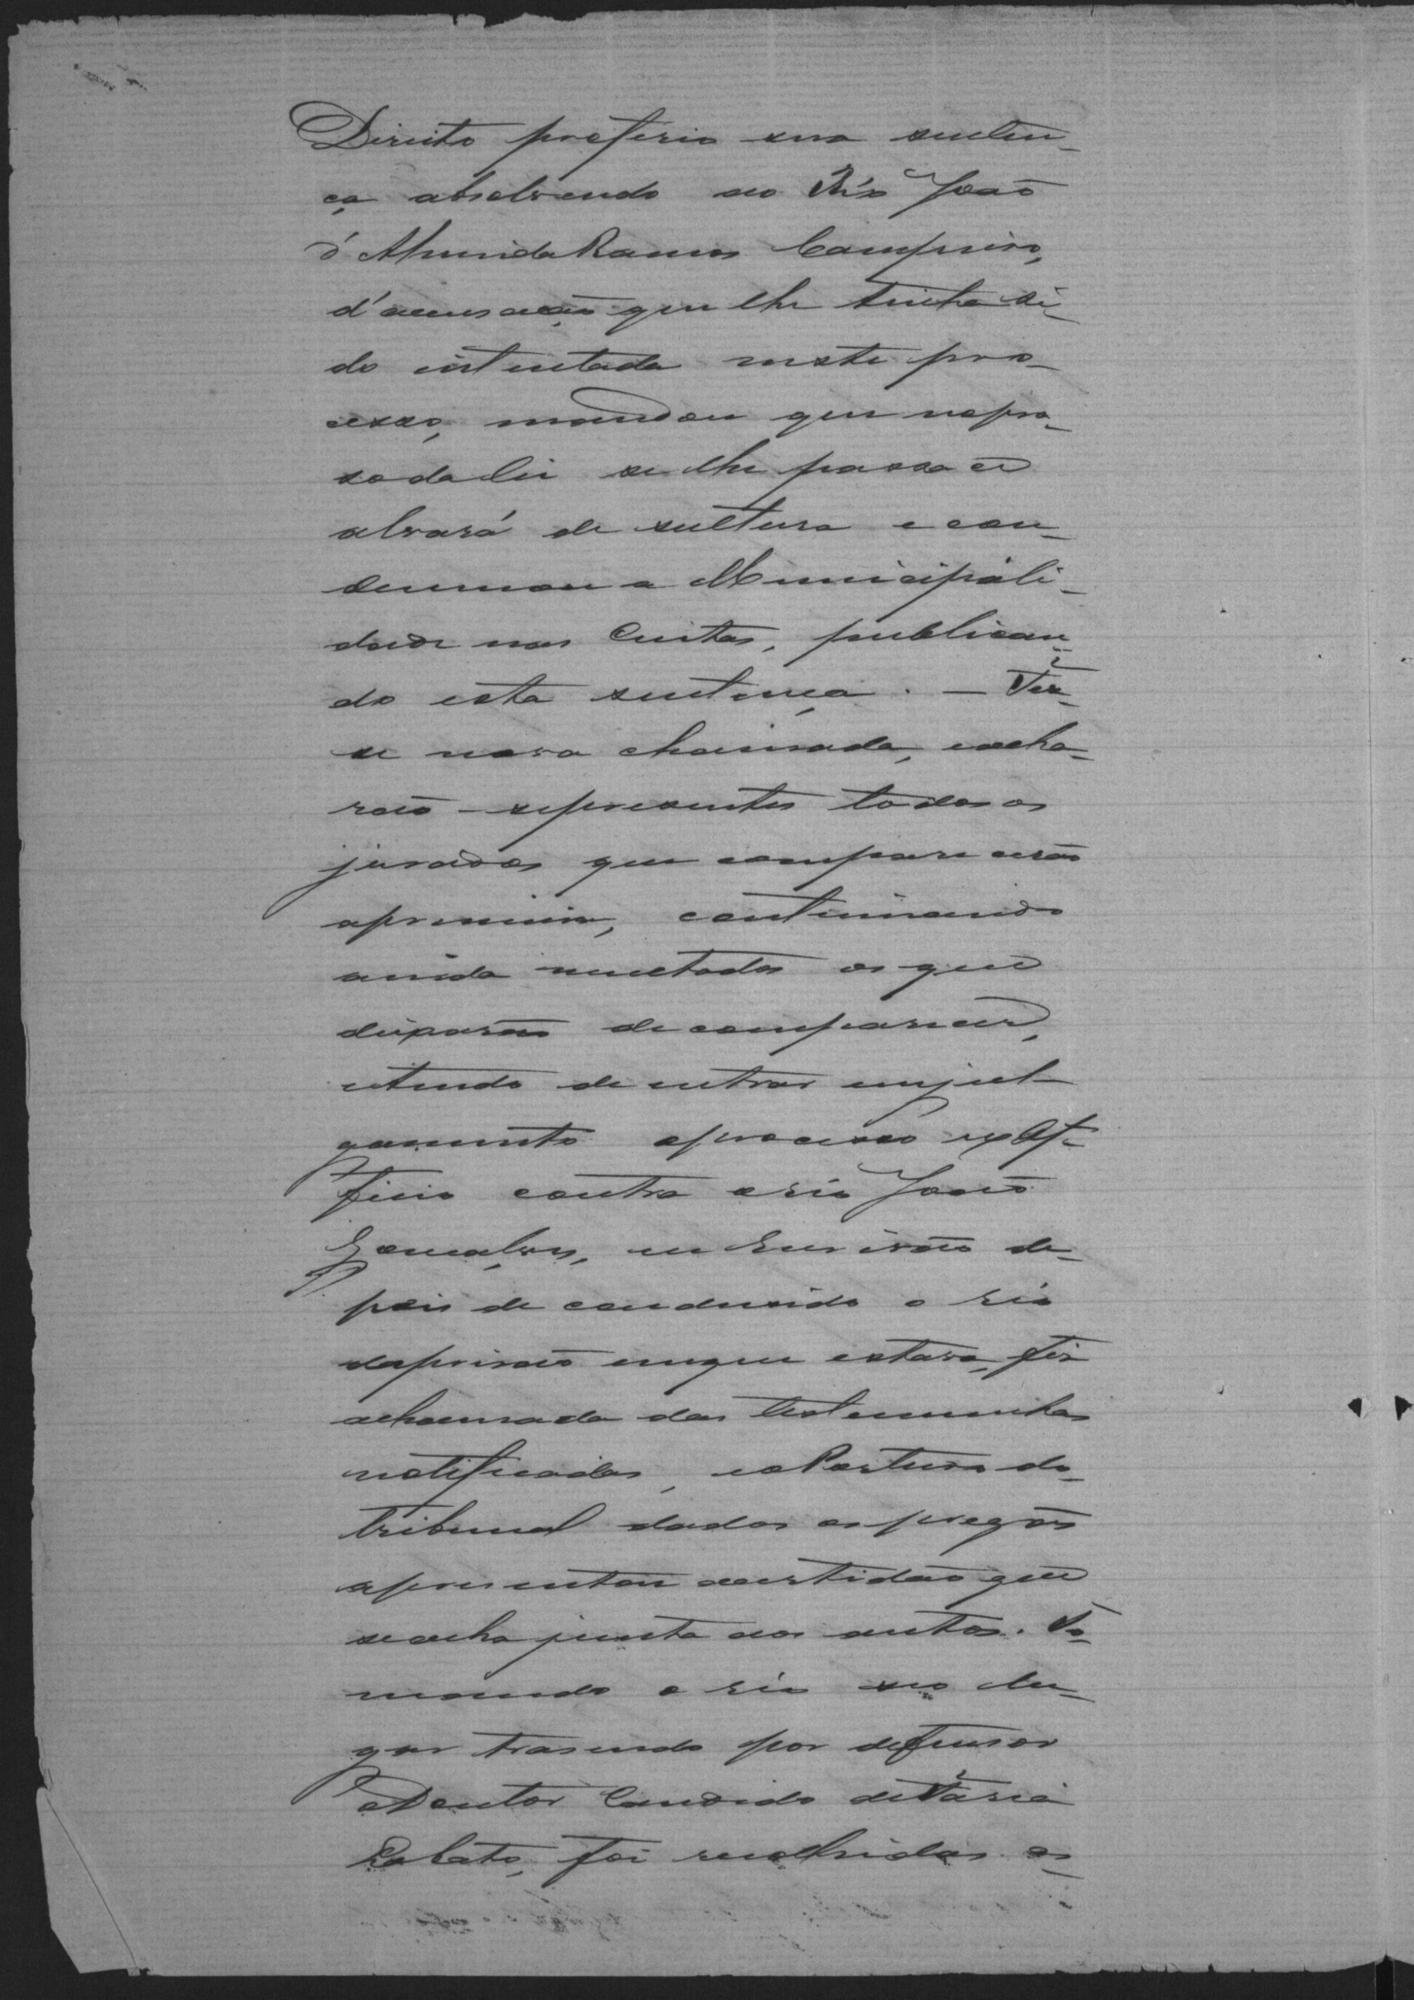 Direito proferio sua senten-
ça absolvendo ao Réo João
d'Almeida Ramos Campeiro,
d'accusação que lhe tinha si-
do intentada neste pro-
cesso, mandou que no pra-
so da lei se lhe passace
alvará de sultura e con-
demnou a Municipali-
dade nas Custas, publican-
do esta sentença. — Fez-
se nova chamada, e acha-
rão-se presentes todos os
jurados que comparecerão
a primeira, continuando
ainda multados os que
deixarão de comparecer,
e tendo de entrar em jul-
gamento o processo ex Of-
ficio contra o réo João
Gonçalves, em cuja occasião de-
pois de condusido o réo
da prisão em que estava, fez
a chamada das testemunhas
notificadas, e o Porteiro do
tribunal dados os pregões
apresentou a certidão que
se acha junta aos autos. To-
mando o réo seo lu-
gar trasendo por defensor
o Doutor Candido de Faria
Lobato, foi recolhidas as